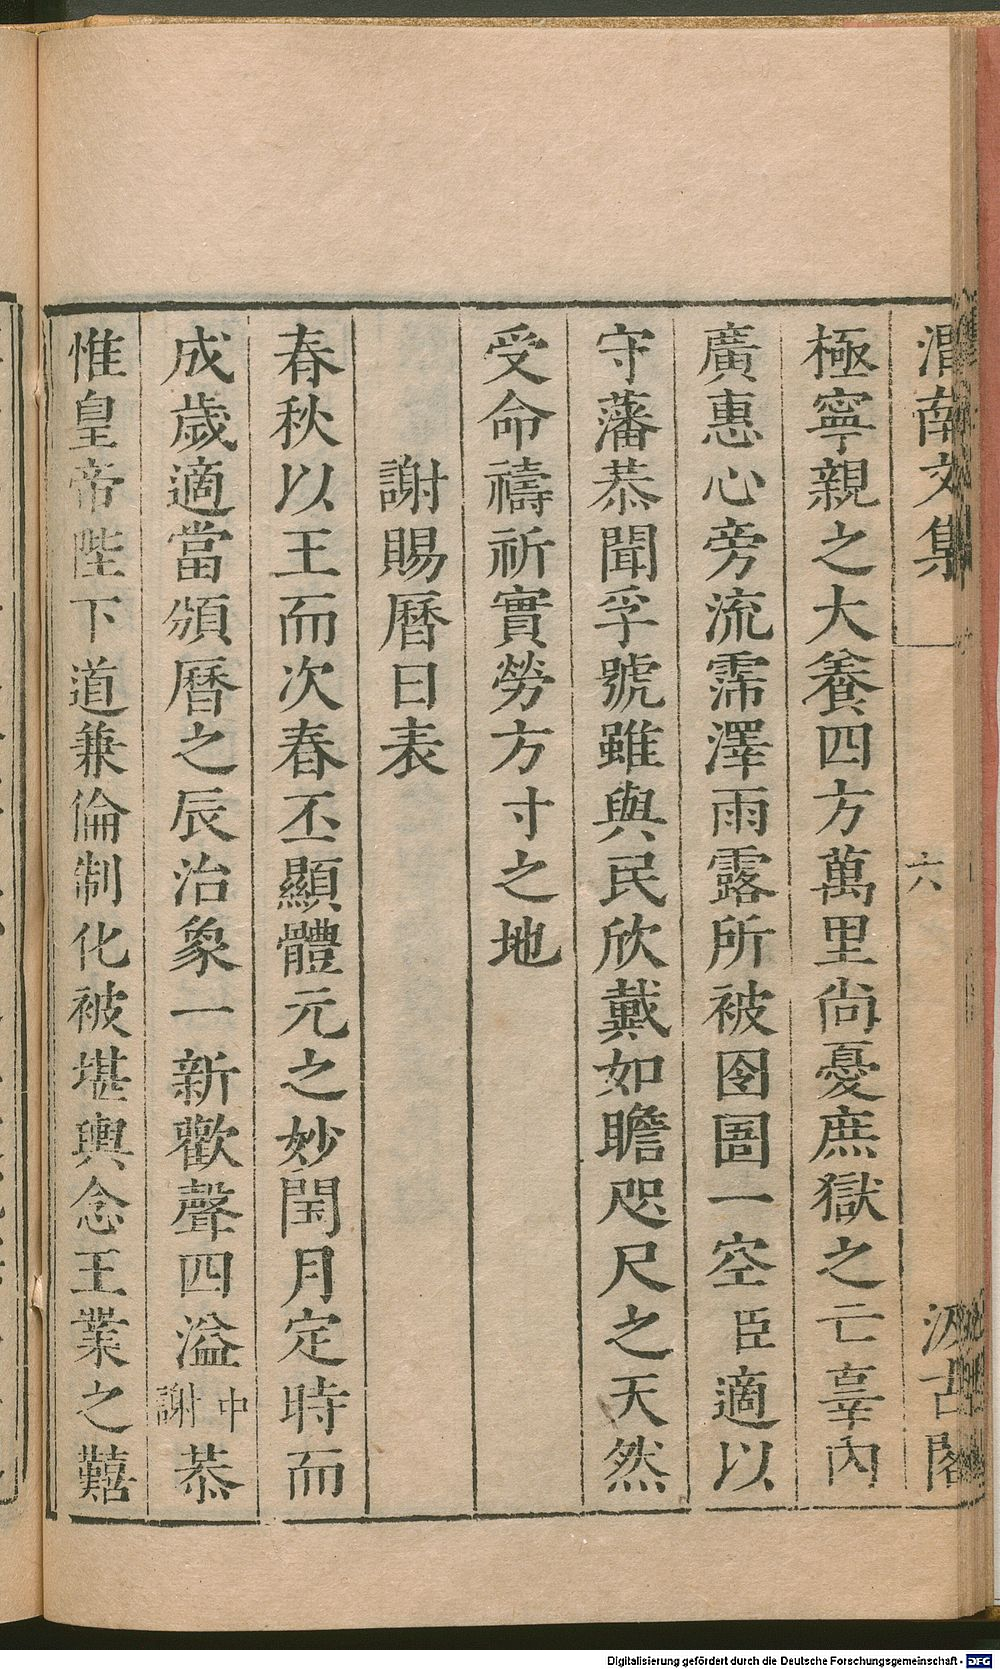 渭南文集
六
汲古閣
極寧親之大養四方萬里尚憂庶獄之亡辜內
廣惠心旁流霈澤雨露所被囹圄一空臣適以
守藩恭聞孚號雖與民欣戴如瞻咫尺之天然
受命禱祈實勞方寸之地
謝賜曆日表
春秋以王而次春丕顯體元之妙閏月定時而
成歲適當頒曆之辰治象一新歡聲四溢中謝恭
惟皇帝陛下道兼倫制化被堪輿念王業之囏
Digitalisierung gefördert durch die Deutsche Forschungsgemeinschaft - DFG